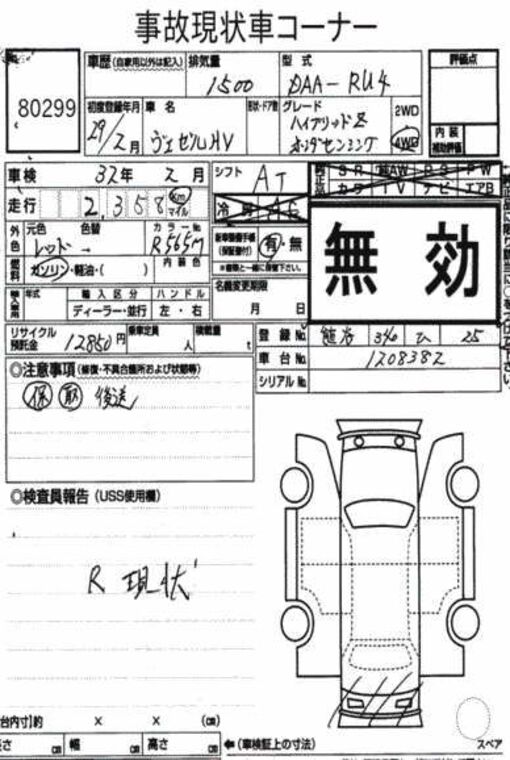 事故現状車コーナー
80299
車歴 (自家用以外は記入) 排気量 1500 型式 DAA-RU4 評価点
初度登録年月 29/2月 車名 ヴェゼルHV 形状・ドア数 グレード ハイブリッドZ ホンダセンシング 2WD 4WD 内装補助評価
車検 32年 2月 シフト AT 純正品 SR 革AW PS PW
走行 2,358 Km マイル 冷房 AC カワ TV ナビ エアB
外色 元色 レッド 色替 → カラーNo. R565M 新車整備手帳(保証書付) 有・無 無効
燃料 ガソリン・軽油・( ) 内装色 ※書類と一緒に保管下さい。
輸入車用 年式 輸入区分 ディーラー・並行 ハンドル 左・右 名義変更期限 月 日
リサイクル預託金 12850円 乗車定員 人 積載量 t 登録No. 熊谷 340 ひ 25
車台No. 1208382
シリアルNo.
◎注意事項 (修復・不具合箇所および状態等)
保 取 後送
◎検査員報告 (USS使用欄)
R 現状
台内寸)約 × × (㎝)
長さ ㎝ 幅 ㎝ 高さ ㎝ ←(車検証上の寸法)
スペア